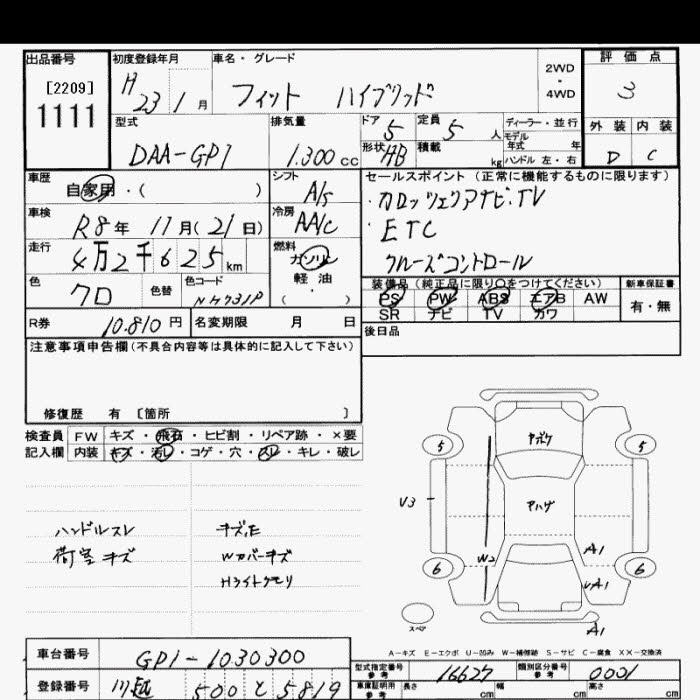 出品番号
[2209]
1111
初度登録年月
H 23 1 月
車名・グレード
フィット ハイブリッド
2WD
・
4WD
評価点
3
外装 内装
D C
型式
DAA-GP1
排気量
1.300 cc
ドア 5
形状 HB
定員 5 人
積載 kg
ディーラー・並行
モデル年式 年
ハンドル 左・右
車歴
自家用・( )
シフト
A/s
車検
R8年 11月(21日)
冷房
AA/c
走行
4万2千625km
燃料
ガソリン
軽油
( )
色
クロ
色替
色コード
NH731P
R券
10.810 円
名変期限 月 日
セールスポイント(正常に機能するものに限ります)
・カロッツェリアナビ.TV
・ETC
クルーズコントロール
装備品(純正品に限り○をつけてください)
PS PW ABS エアB AW
SR ナビ TV カワ
新車保証書
有・無
後日品
注意事項申告欄(不具合内容等は具体的に記入して下さい)
修復歴 有 〔箇所 〕
検査員 FW キズ・飛石・ヒビ割・リペア跡・×要
記入欄 内装 キズ・汚レ・コゲ・穴・スレ・キレ・破レ
ハンドルスレ
荷室キズ
キズ
Wカバーキズ
Hライトクモリ
アハゲ
5 5
V3
W2
A1
6 6
A1
スペア
A1
A-キズ E-エクボ U-凹み W-補修跡 S-サビ C-腐食 XX-交換済
車台番号
GP1-1030300
登録番号
川越 500 と 5819
型式指定番号
参考
16627
類別区分番号
参考
0001
車庫証明用
参考
長さ cm
幅 cm
高さ cm